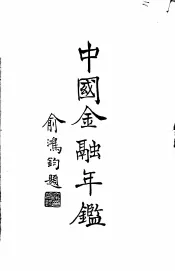 中國金融年鑑
俞鴻鈞題